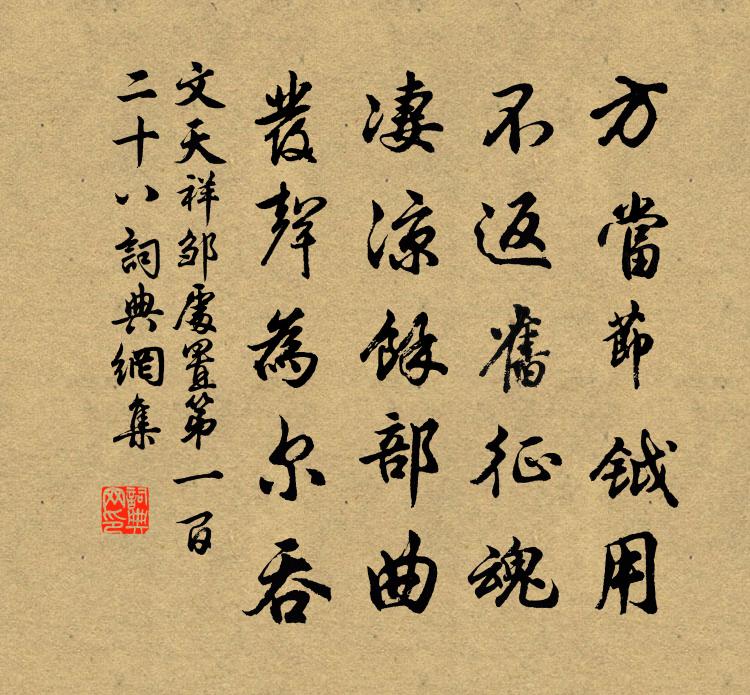 方當節鉞用
不返舊征魂
淒涼餘部曲
發聲為尔吞
文天祥邹處置第一百
二十八詞典網集
詞典
网印